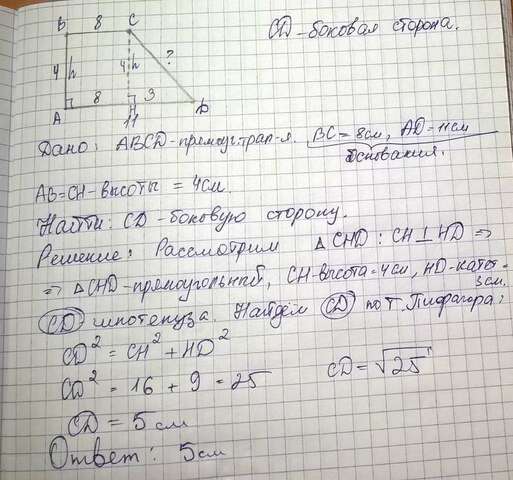 B 8 C
CD - боковая сторона.
4 h 4 h ?
8 3
A H D
11
Дано: ABCD - прямоуг. трап-я. BC = 8 см, AD = 11 см
основания.
AB = CH - высоты = 4 см.
Найти: CD - боковую сторону.
Решение: Рассмотрим △CHD : CH ⊥ HD ⇒
⇒ △CHD - прямоугольный, CH - высота = 4 см, HD - катет =
3 см.
CD гипотенуза. Найдём CD по т. Пифагора:
CD² = CH² + HD²
CD² = 16 + 9 = 25 CD = √25
CD = 5 см
Ответ: 5 см